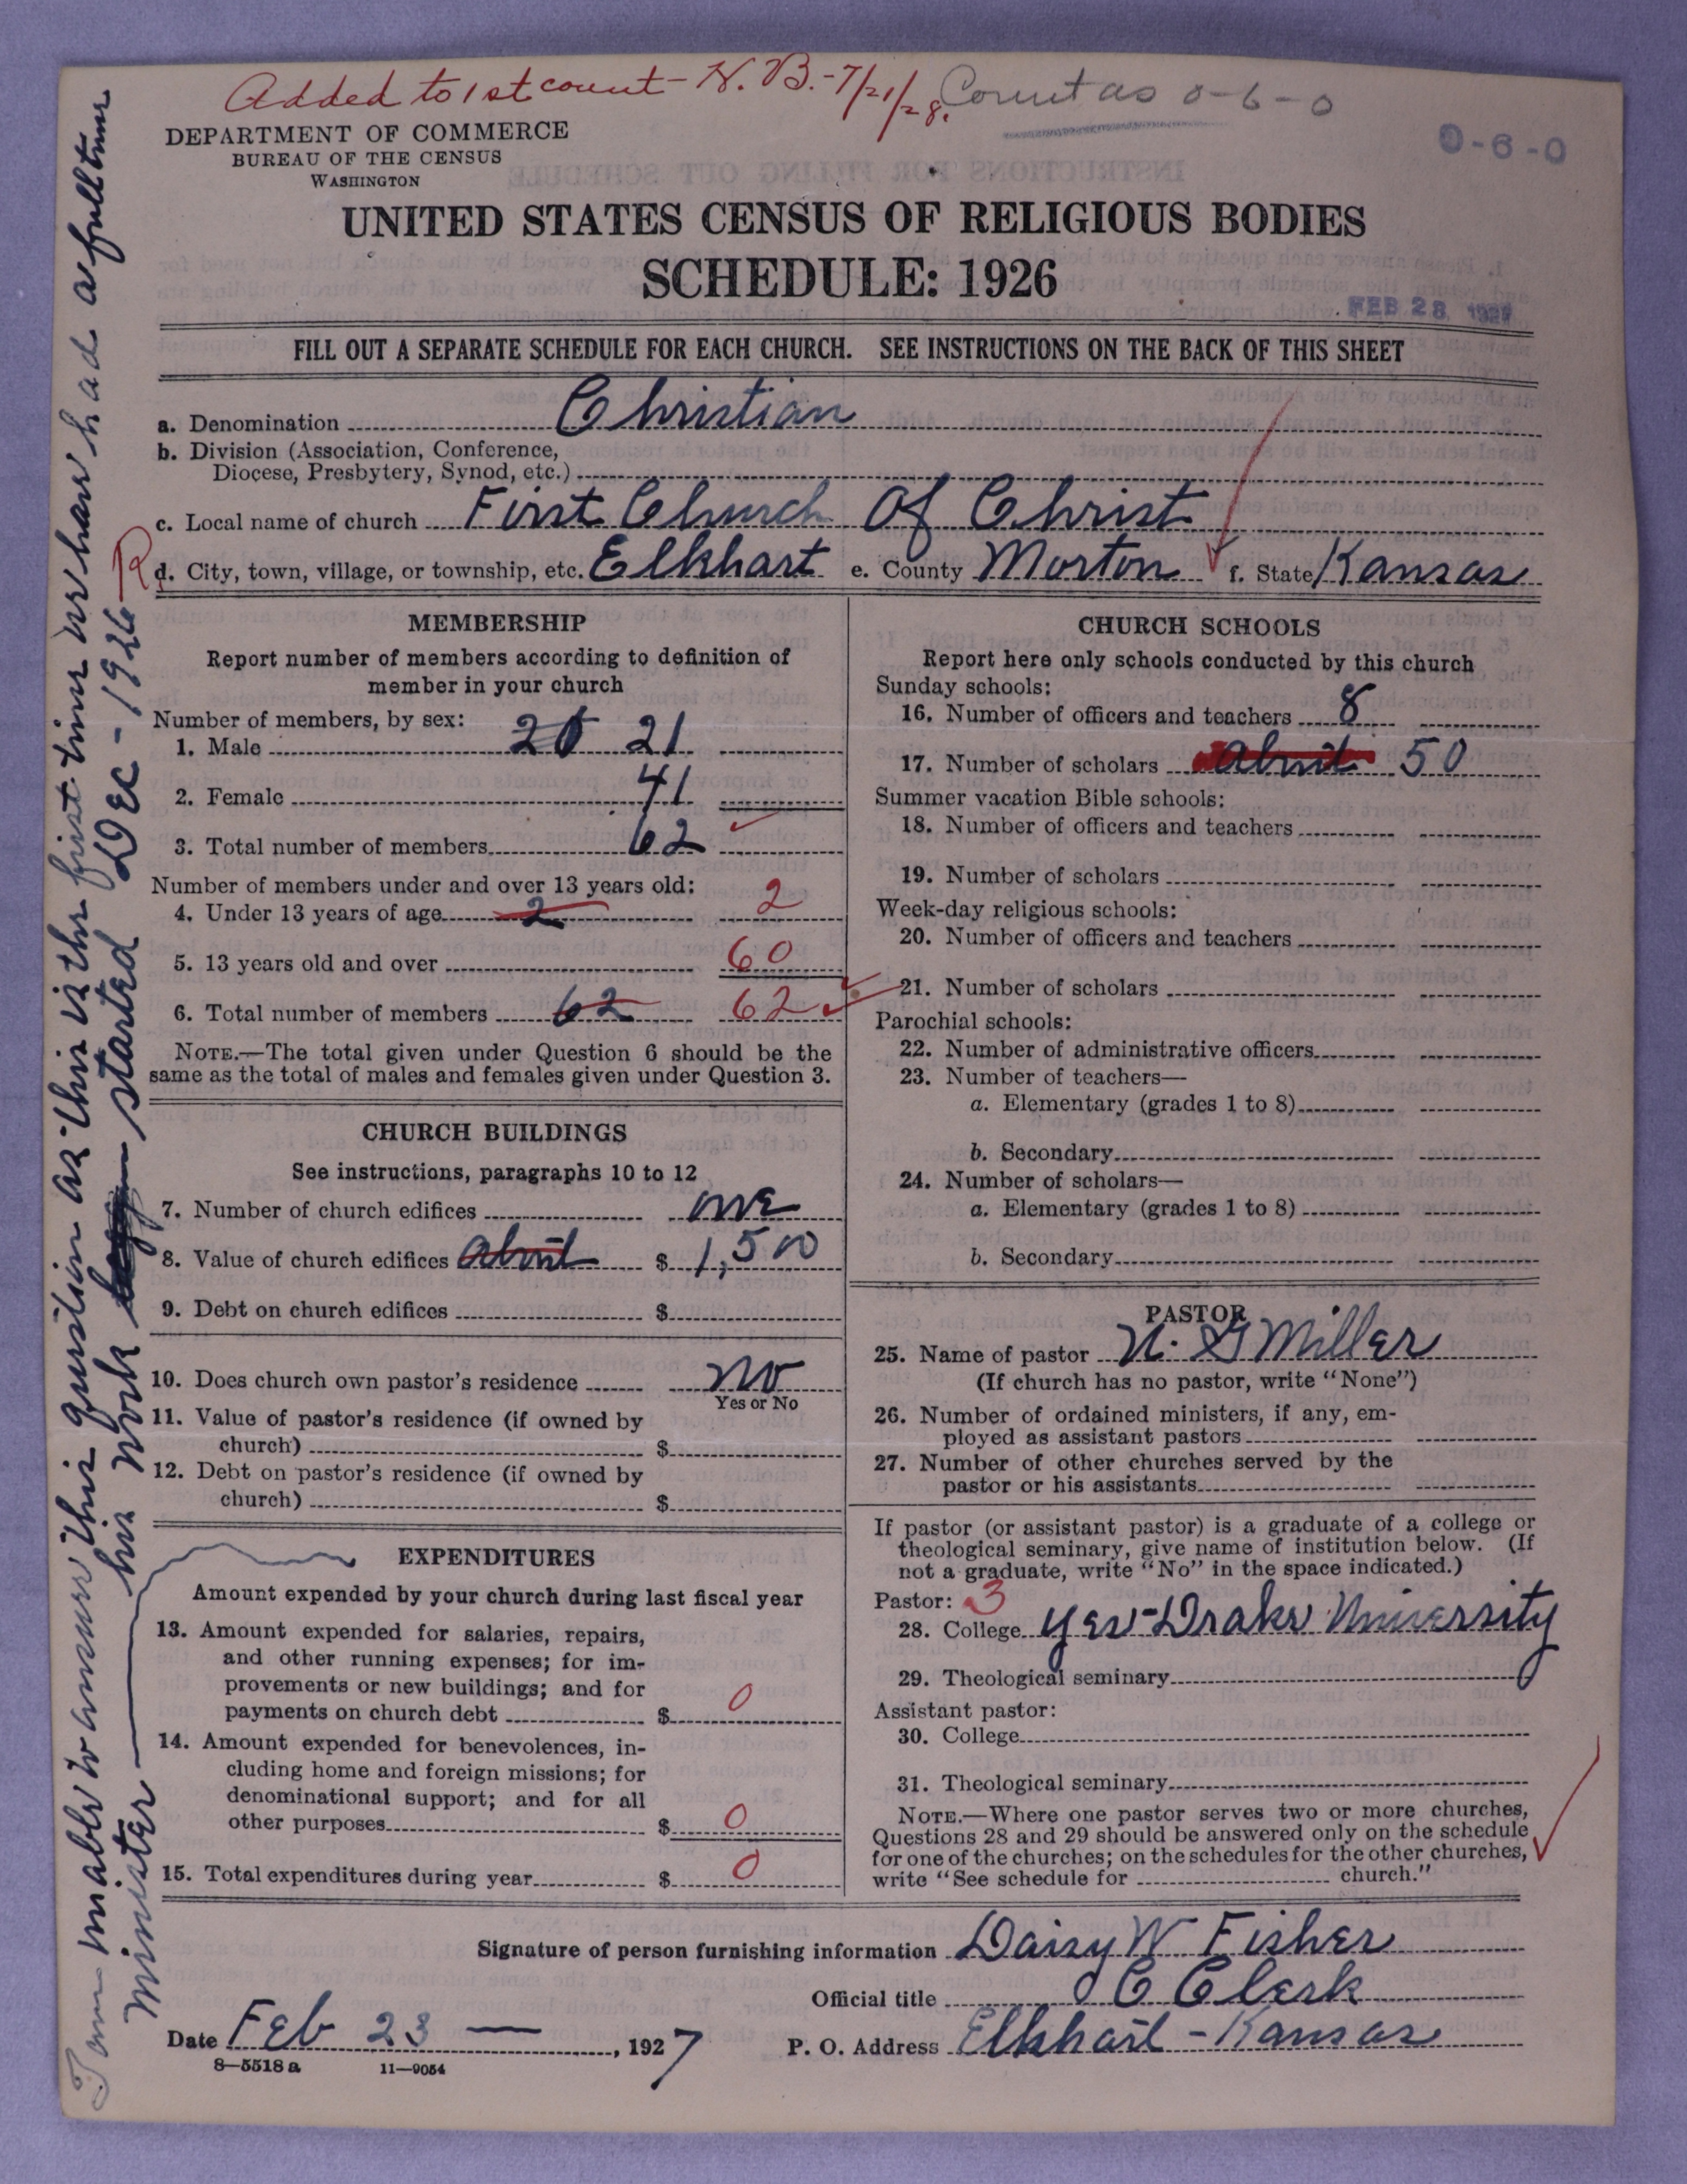 Added to 1st count - H. B. - 7/21/28. Count as 0-6-0
DEPARTMENT OF COMMERCE
BUREAU OF THE CENSUS
WASHINGTON
0-6-0
UNITED STATES CENSUS OF RELIGIOUS BODIES
SCHEDULE: 1926
FEB 28 1927
FILL OUT A SEPARATE SCHEDULE FOR EACH CHURCH. SEE INSTRUCTIONS ON THE BACK OF THIS SHEET
a. Denomination Christian
b. Division (Association, Conference,
Diocese, Presbytery, Synod, etc.)
c. Local name of church First Church Of Christ
R d. City, town, village, or township, etc. Elkhart e. County Morton f. State Kansas
MEMBERSHIP
Report number of members according to definition of
member in your church
Number of members, by sex:
1. Male 21
2. Female 41
3. Total number of members 62
Number of members under and over 13 years old:
4. Under 13 years of age 2 2
5. 13 years old and over 60
6. Total number of members 62 62
NOTE.—The total given under Question 6 should be the
same as the total of males and females given under Question 3.
CHURCH BUILDINGS
See instructions, paragraphs 10 to 12
7. Number of church edifices one
8. Value of church edifices about $ 1,500
9. Debt on church edifices $
10. Does church own pastor's residence no
Yes or No
11. Value of pastor's residence (if owned by
church) $
12. Debt on pastor's residence (if owned by
church) $
EXPENDITURES
Amount expended by your church during last fiscal year
13. Amount expended for salaries, repairs,
and other running expenses; for im-
provements or new buildings; and for
payments on church debt $ 0
14. Amount expended for benevolences, in-
cluding home and foreign missions; for
denominational support; and for all
other purposes $ 0
15. Total expenditures during year $ 0
CHURCH SCHOOLS
Report here only schools conducted by this church
Sunday schools:
16. Number of officers and teachers 8
17. Number of scholars about 50
Summer vacation Bible schools:
18. Number of officers and teachers
19. Number of scholars
Week-day religious schools:
20. Number of officers and teachers
21. Number of scholars
Parochial schools:
22. Number of administrative officers
23. Number of teachers—
a. Elementary (grades 1 to 8)
b. Secondary
24. Number of scholars—
a. Elementary (grades 1 to 8)
b. Secondary
PASTOR
25. Name of pastor N. G Miller
(If church has no pastor, write "None")
26. Number of ordained ministers, if any, em-
ployed as assistant pastors
27. Number of other churches served by the
pastor or his assistants
If pastor (or assistant pastor) is a graduate of a college or
theological seminary, give name of institution below. (If
not a graduate, write "No" in the space indicated.)
Pastor: 3
28. College yes - Drake University
29. Theological seminary
Assistant pastor:
30. College
31. Theological seminary
NOTE.—Where one pastor serves two or more churches,
Questions 28 and 29 should be answered only on the schedule
for one of the churches; on the schedules for the other churches,
write "See schedule for church."
Signature of person furnishing information Daisy W Fisher
Official title C Clerk
Date Feb 23 — , 1927 P. O. Address Elkhart - Kansas
8—5518 a 11—9054
I am unable to answer this question as this is the first time we have had a full time
minister — his work started Dec - 1926